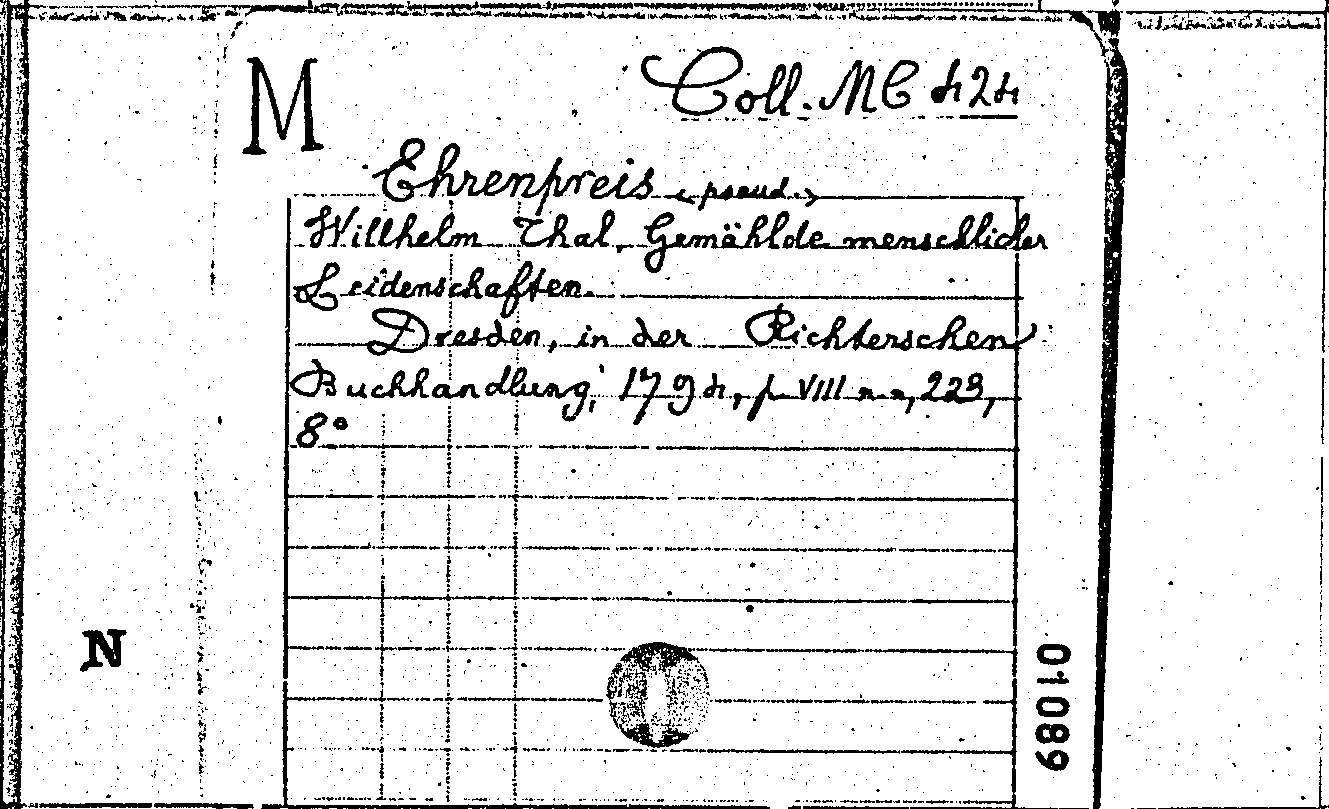 M
Coll. MC 424
Ehrenpreis <pseud.>
Willhelm Thal. Gemählde menschlicher
Leidenschaften.
Dresden, in der Richterschen
Buchhandlung, 1794, p VIII n.n., 223,
8°
N
01089